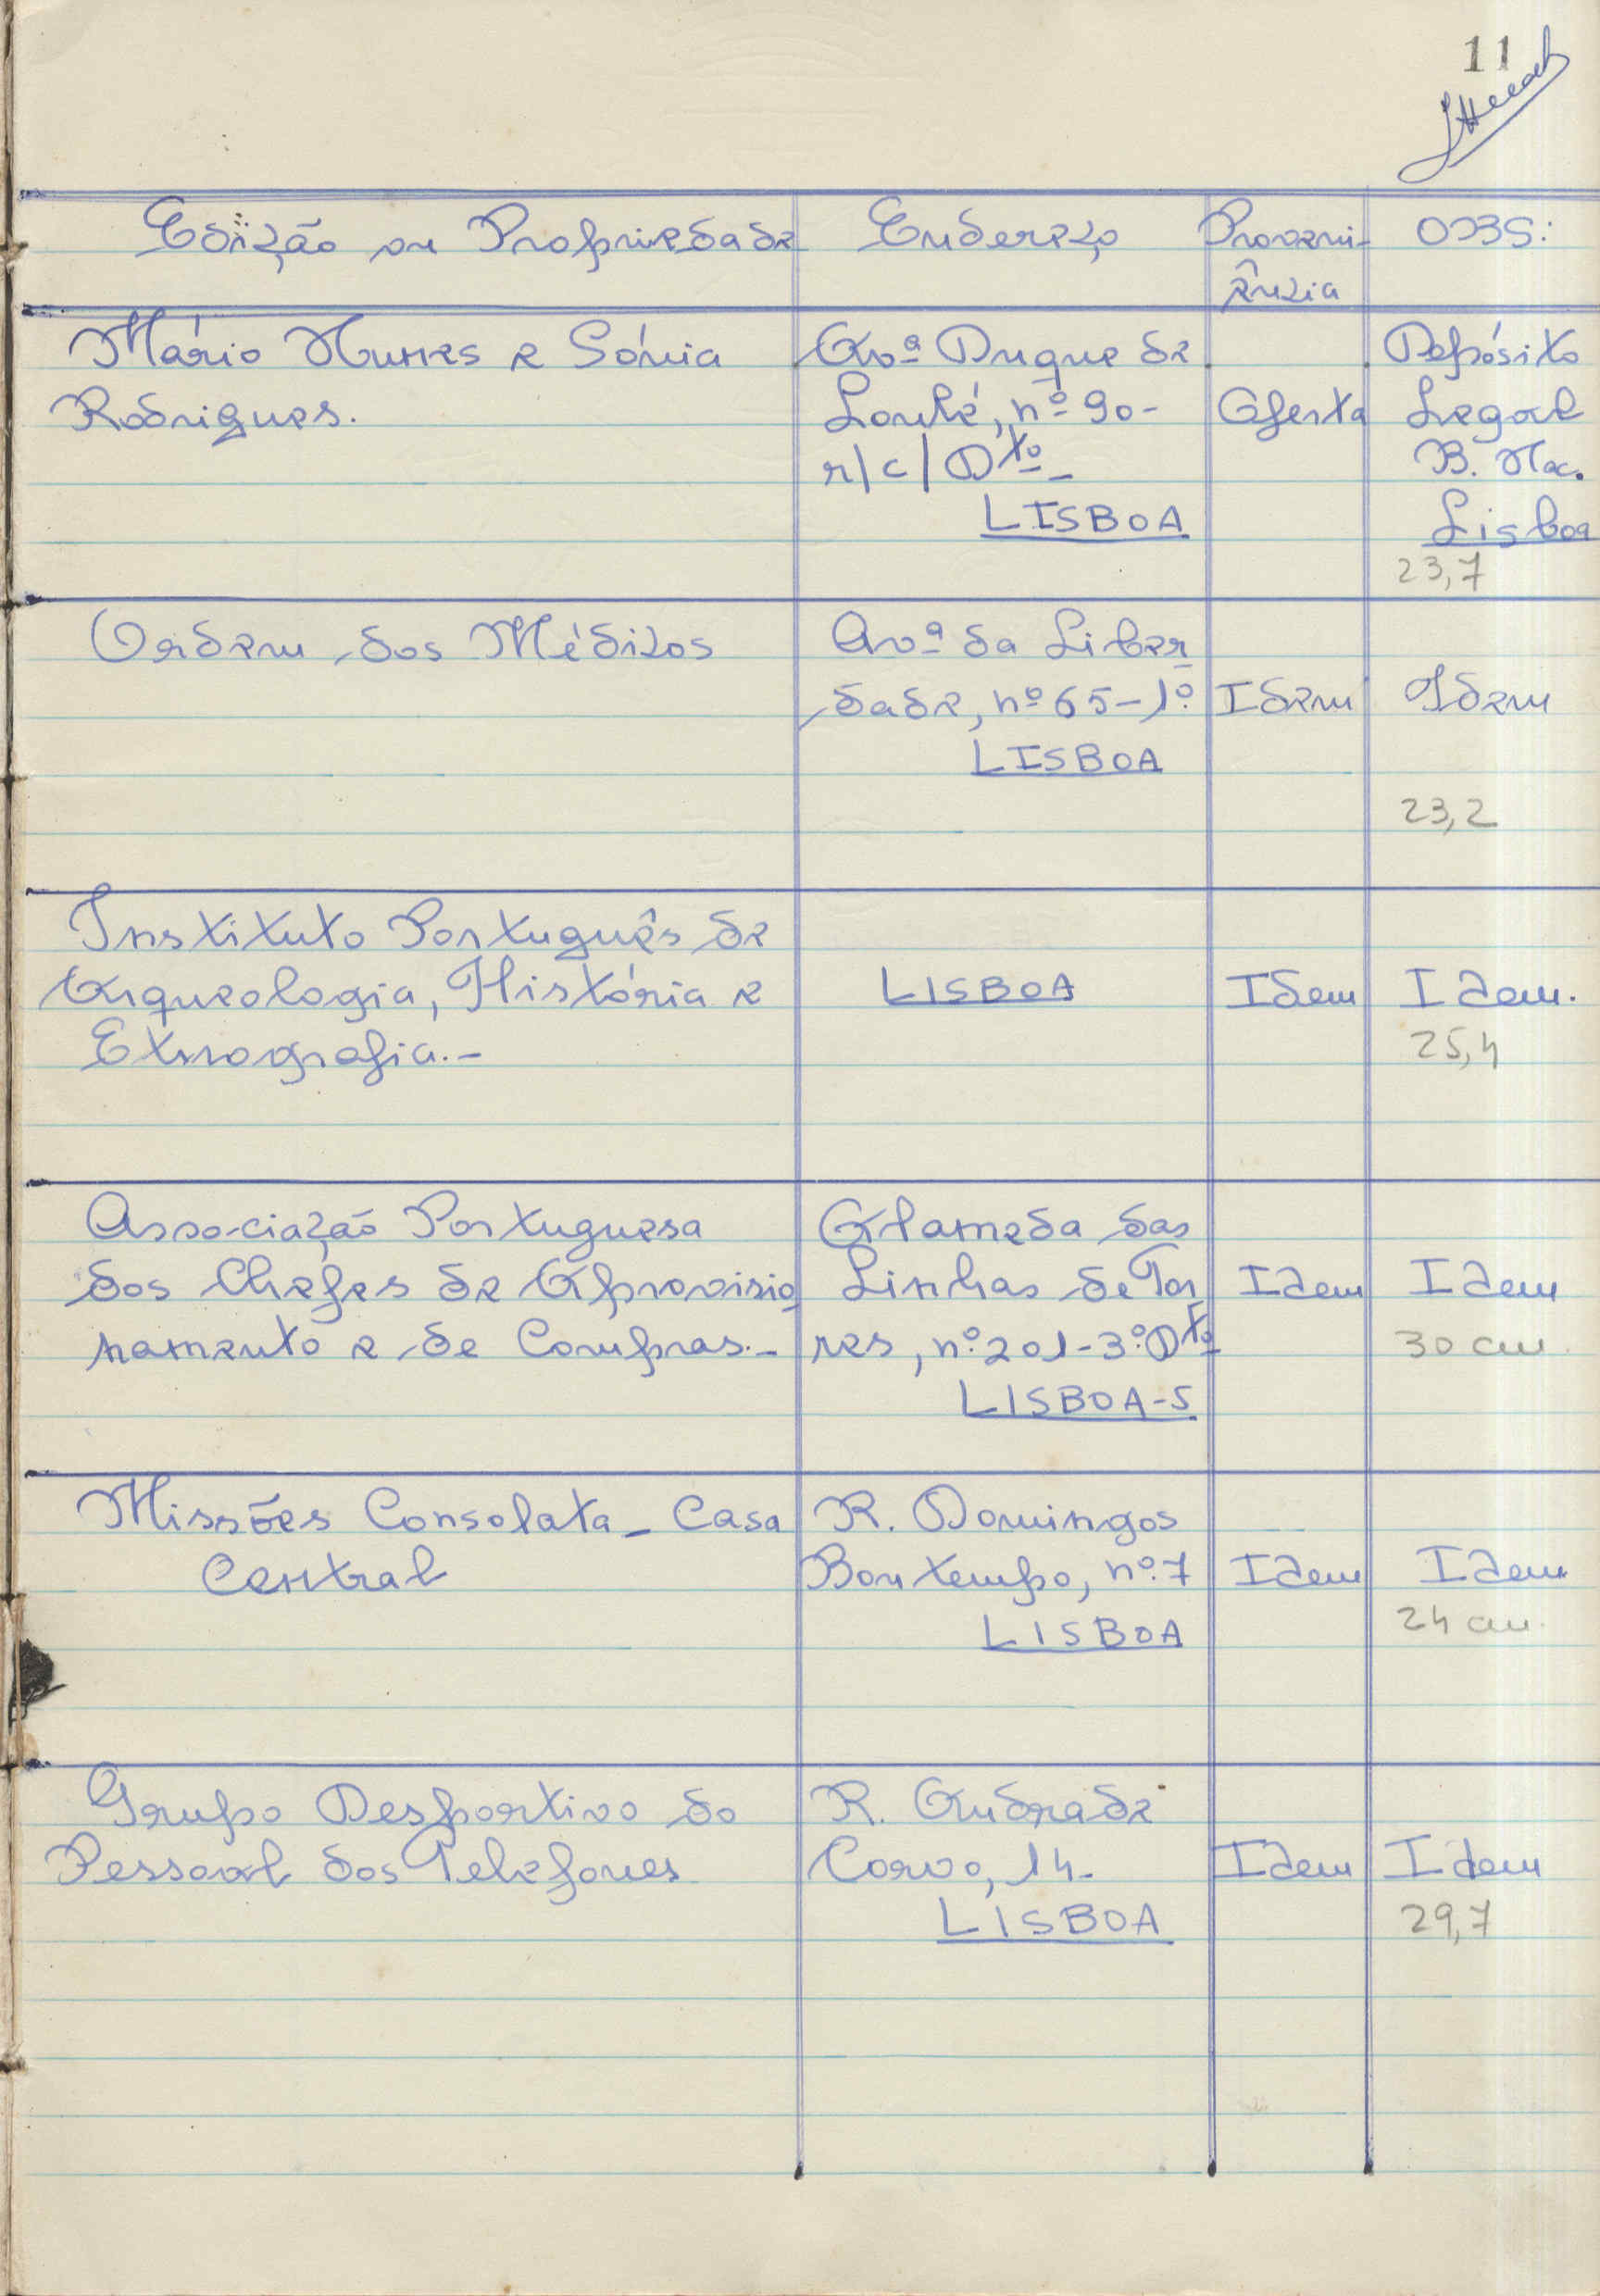 11
Edição ou Propriedade Endereço Proveni- OBS:
ência
Mário Nunes e Sónia
Rodrigues.
Avª Duque de
Loulé, nº 90-
r/c/Dtº-
LISBOA
Oferta
Depósito
Legal
B. Nac.
Lisboa
23,7
Ordem dos Médicos
Avª da Liber
dade, nº 65-1º
LISBOA
Idem
Idem
23,2
Instituto Português de
Arqueologia, História e
Etnografia.-
LISBOA
Idem
Idem.
25,4
Associação Portuguesa
dos Chefes de Aprovisio
namento e de Compras.-
Alameda das
Linhas de Tor
res, nº 201-3º.Dtº
LISBOA-5
Idem
Idem
30 cm.
Missões Consolata - Casa
Central
R. Domingos
Bontempo, nº.7
LISBOA
Idem
Idem
24 cm.
Grupo Desportivo do
Pessoal dos Telefones
R. Andrade
Corvo, 14-
LISBOA
Idem
Idem
29,7